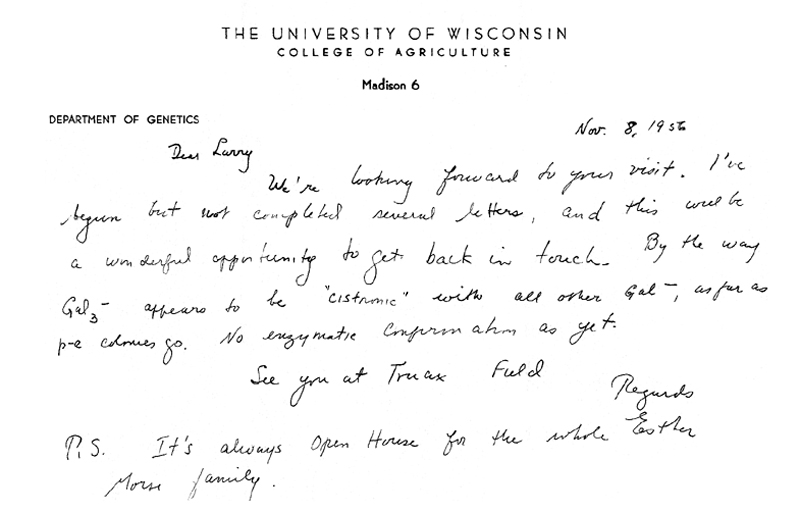 THE UNIVERSITY OF WISCONSIN
COLLEGE OF AGRICULTURE
Madison 6
DEPARTMENT OF GENETICS
Nov. 8, 1956
Dear Larry
We're looking forward to your visit. I've
begun but not completed several letters, and this will be
a wonderful opportunity to get back in touch. By the way
Gal₃⁻ appears to be "cistronic" with all other Gal⁻, as far as
p-a colonies go. No enzymatic confirmation as yet.
See you at Truax Field
Regards
Esther
P.S. It's always Open House for the whole
Morse family.